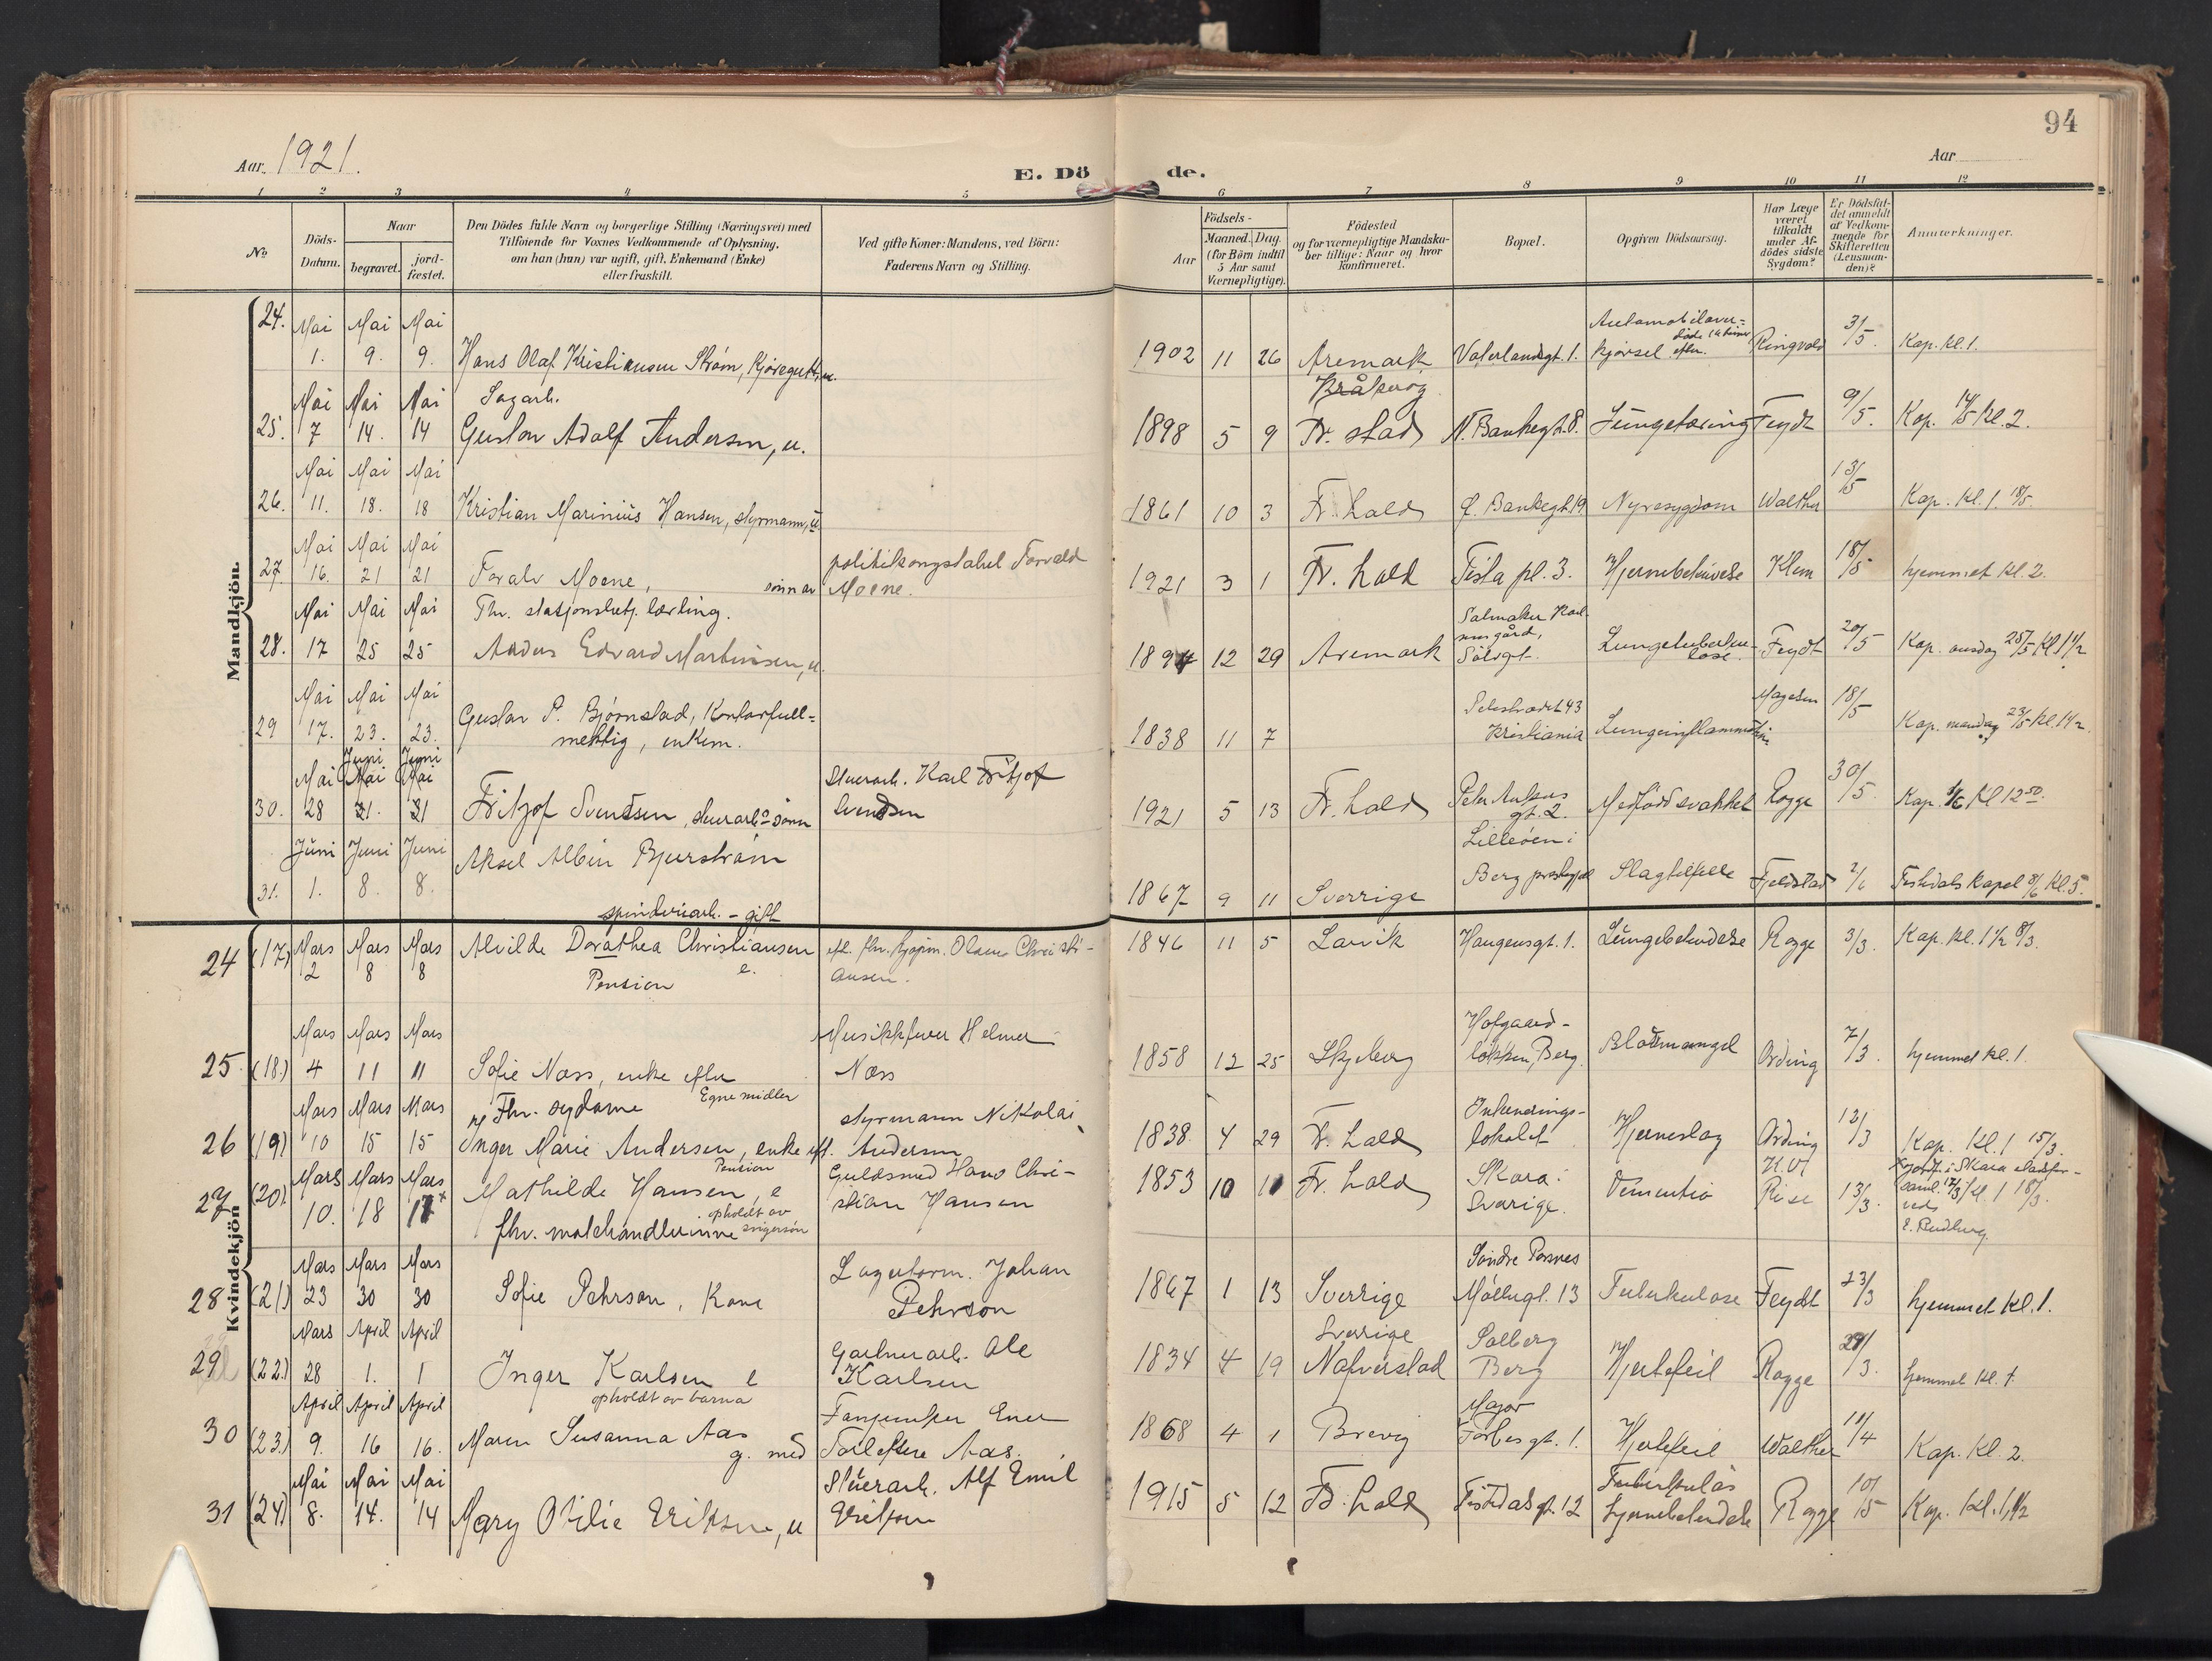 94
Aar 1921.
E. Dö de.
Aar
1 2 3 4 5 6 7 8 9 10 11 12
No
Döds-Datum.
Naar
begravet.
jord-fæstet.
Den Dödes fulde Navn og borgerlige Stilling (Næringsvei) med
Tilföiende for Voxnes Vedkommende af Oplysning,
om han (hun) var ugift, gift, Enkemand (Enke)
eller fraskilt.
Ved gifte Koner: Mandens, ved Börn:
Faderens Navn og Stilling.
Födsels-
Aar
Maaned. Dag.
(for Börn indtil
5 Aar samt
Værnepligtige).
Födested
og for værnepligtige Mandska-
ber tillige: Naar og hvor
konfirmeret.
Bopæl.
Opgiven Dödsaarsag.
Har Læge
været
tilkaldt
under Af-
dödes sidste
Sygdom?
Er Dödsfal-
det anmeldt
af Vedkom-
mende for
Skifteretten
(Lensman-
den)?
Anmærkninger.
Mandkjön.
24. Mai 1. Mai 9. Mai 9. Hans Olaf Kristiansen Strøm, Kjøregutt, u. 1902 11 26 Aremark Vaterlandsgt. 1. Automobilover-kjørsel Ringvold 3/5. Kap. kl. 1.
25. Mai 7 Mai 14. Mai 14 Sagarb. Gustav Adolf Andersen, u. 1898 5 9 Kråkerøy Fr. stad N. Bankegt. 8. Lungetæring Feydt 9/5. Kap. 14/5 kl. 2.
26. Mai 11. Mai 18. Mai 18 Kristian Marinius Hansen, styrmann, u. 1861 10 3 Fr. hald Ø. Bankegt. 19 Nyresygdom Walther 13/5 Kap. kl. 1. 18/5.
27. Mai 16. Mai 21 Mai 21 Toralv Moene, sønn av politikonstabel Torvald Moene. 1921 3 1 Fr. hald Tista pl. 3. Hjernebetendelse Klem 18/5 hjemmet kl. 2.
28. Mai 17 Mai 25 Mai 25 Fhv. stasjonsbetj. lærling. Anders Edvard Martinsen, u. 1894 12 29 Aremark Salmaker Karlsens gård, Sølvgt. Lungetuberkulose. Feydt 20/5 Kap. onsdag 25/5 kl 1 1/2
29 Mai 17. Mai 23. Mai 23. Gustav P. Bjørnstad, Kontorfull-
mektig, enkem. 1838 11 7 Pilestrædet 43 Kristiania Lungeinflammation Magelsen 18/5 Kap. mandag 23/5 kl. 1 1/2.
30. Mai 28 Juni Mai 21. Juni Mai 21 Fritzof Svendsen, stuerarb.s sønn Stuerarb. Karl Fritjof Svendsen 1921 5 13 Fr. hald Peter Ankers gt. 2. Medfødd svakhet Rogge 30/5. Kap. 1/6 kl 12 50.
31. Juni 1. Juni 8. Juni 8. Aksel Albin Bjurstrøm
spinderiarb. - gift 1867 9 11 Sverrige Lilleøen i Berg prestegjeld Slagtilfelle Fjeldstad 2/6 Tistedals Kapel 8/6 kl. 5.
Kvindekjön
24 (17) Mars 2 Mars 8 Mars 8 Alvilde Dorathea Christiansen e. Pension ef. fhv. Olaus Christi-
ansen. 1846 11 5 Larvik Haugensgt. 1. Lungebetendelse Rogge 3/3. Kap. kl. 1 1/2 8/3.
25 (18.) Mars 4 Mars 11 Mars 11 Sofie Næss, enke efter Egne midler Musikkfører Helmer Næss 1858 12 25 Skjeberg Hofgaard-
løkken, Berg. Blodmangel Ording 7/3. hjemmet kl. 1.
26 (19) Mars 10 Mars 15 Mars 15 Fhv. sydame Inger Marie Andersen, enke eft. Pension styrmann Nikolai Andersen 1838 4 29 Fr. hald Inkvarterings-
lokalet Hjerneslag Ording 12/3 Kap. kl. 1 15/3.
27 (20) Mars 10. Mars 18 Mars 17 x Mathilde Hansen, e opholdt av svigersøn
fhv. motehandlerinne Guldsmed Hans Chri-
stian Hansen 1853 10 11 Fr. hald Skara i Sverige. Dementia K.V. Rise 13/3. x Jordf. i Skara stadsfor-
saml. 17/3 kl. 1 18/3.
ved
E. Rudberg.
28 (21) Mars 23 Mars 30 Mars 30 Sofie Pehrson, Kone Lagerform. Johan Pehrson 1867 1 13 Sverrige Søndre Møllegt. 13 Tuberkulose Feydt 23/3 hjemmet kl. 1.
29 (22) Mars 28 April 1. April 1 Inger Karlsen e
opholdt av barna Gartnerarb. Ole Karlsen 1834 4 19 Sverrige Nafverstad Solberg Berg Hjertefeil Rogge 29/3. hjemmet kl. 1.
30 (23.) April 9. April 16 April 16. Maren Susanna Aas g. med Fanejunker Ener Torleifsen Aas. 1868 4 1 Brevig Major Forbes gt. 1. Hjertefeil Walther 11/4 Kap. kl. 2.
31 (24) Mai 8. Mai 14. Mai 14 Mary Otilie Eriksen, u Stuerarb. Alf Emil Eriksen 1915 5 12 Fr. hald Tistedalsgt. 12 Tuberkuløs hjernebetendelse Rogge 10/5 Kap. kl. 1 1/2